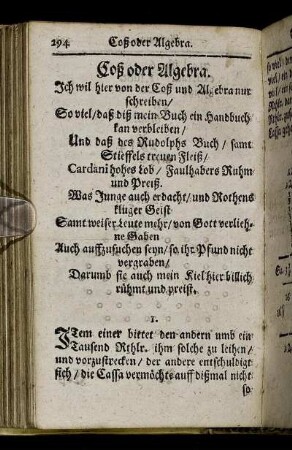 294 Coß oder Algebra.
Coß oder Algebra.
Ich wil hier von der Coß und Algebra nur
schreiben/
So viel/daß diß mein Buch ein Handbuch
kan verbleiben/
Und daß des Rudolphs Buch/ samt
Stieffels treuen Fleiß/
Cardani hohes Lob/ Faulhabers Ruhm
und Preiß.
Was Junge auch erdacht/und Rothens
kluger Geist
Samt weiser Leute mehr/von Gott verlieh-
ne Gaben
Auch auffzusuchen seyn/so ihr Pfund nicht
vergraben/
Darumb sie auch mein Kiel hier billich
rühmt und preist.
1.
ITem einer bittet den andern umb ein
Tausend Rthlr. ihm solche zu leihen/
und vorzustrecken/ der andere entschuldigt
sich/die Cassa vermöchte auff dißmal nicht
so